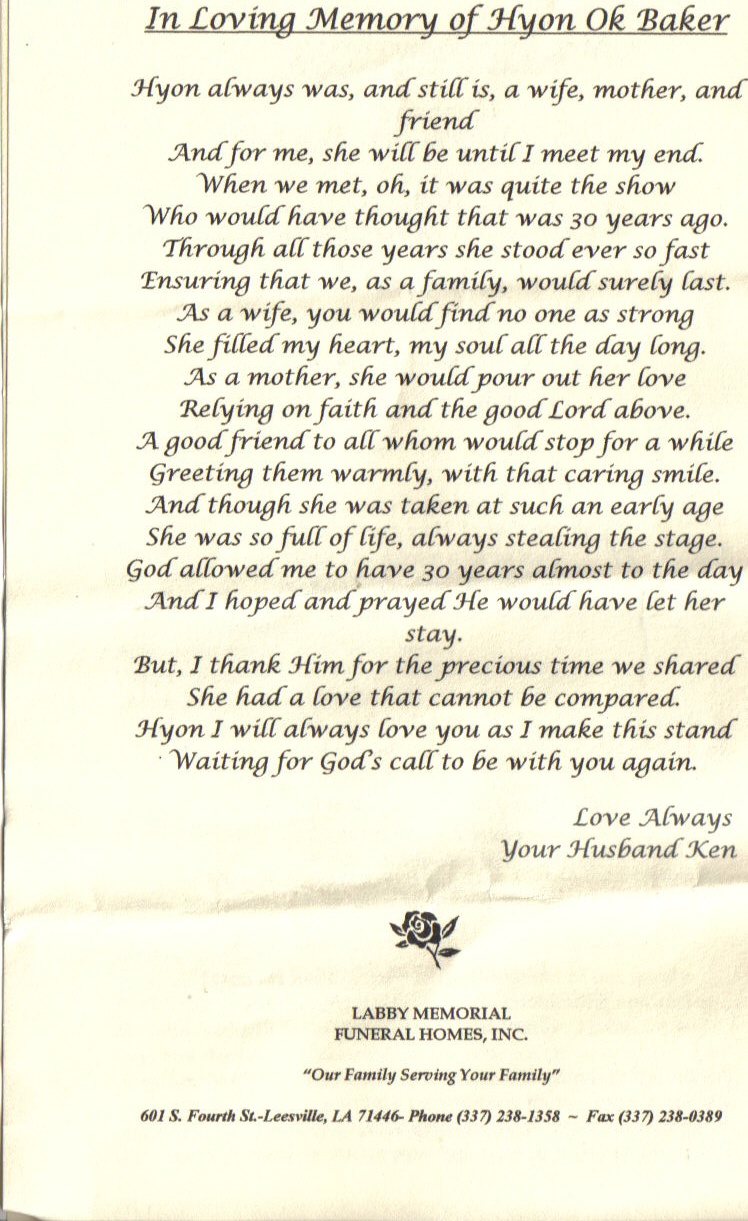 In Loving Memory of Hyon Ok Baker
Hyon always was, and still is, a wife, mother, and
friend
And for me, she will be until I meet my end.
When we met, oh, it was quite the show
Who would have thought that was 30 years ago.
Through all those years she stood ever so fast
Ensuring that we, as a family, would surely last.
As a wife, you would find no one as strong
She filled my heart, my soul all the day long.
As a mother, she would pour out her love
Relying on faith and the good Lord above.
A good friend to all whom would stop for a while
Greeting them warmly, with that caring smile.
And though she was taken at such an early age
She was so full of life, always stealing the stage.
God allowed me to have 30 years almost to the day
And I hoped and prayed He would have let her
stay.
But, I thank Him for the precious time we shared
She had a love that cannot be compared.
Hyon I will always love you as I make this stand
Waiting for God's call to be with you again.
Love Always
Your Husband Ken
LABBY MEMORIAL
FUNERAL HOMES, INC.
"Our Family Serving Your Family"
601 S. Fourth St.-Leesville, LA 71446- Phone (337) 238-1358 ~ Fax (337) 238-0389